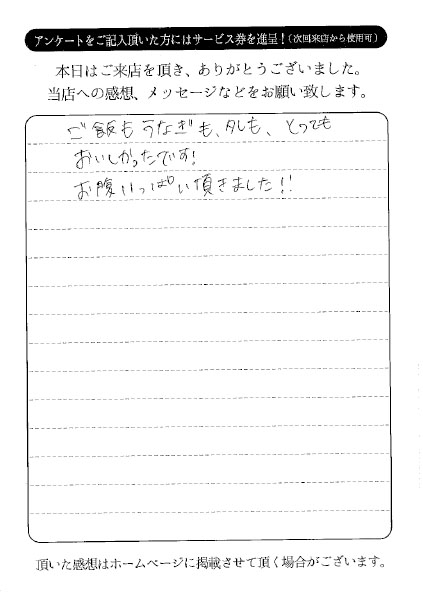 アンケートをご記入頂いた方にはサービス券を進呈！(次回来店から使用可)
本日はご来店を頂き、ありがとうございました。
当店への感想、メッセージなどをお願い致します。
ご飯もうなぎも、タレも、とっても
おいしかったです！
お腹いっぱい頂きました！！
頂いた感想はホームページに掲載させて頂く場合がございます。